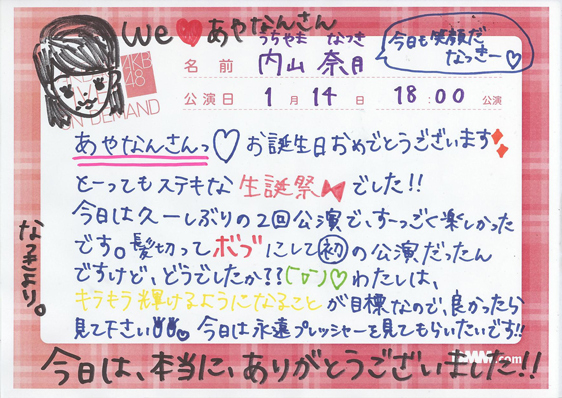 we♥あやなんさん
今日も笑顔だ
なっきー♡
うちやま なつき
名前 内山 奈月
AKB
48
LIVE
ON DEMAND
公演日 1月14日 18:00 公演
あやなんさんっ♡お誕生日おめでとうございます
とーってもステキな生誕祭でした!!
今日は久ーしぶりの2回公演で、すーっごく楽しかった
です。髪切ってボブにして初の公演だったん
ですけど、どうでしたか??♡わたしは、
キラもう輝けるようになることが目標なので、良かったら
見て下さい。今日は永遠プレッシャーを見てもらいたいです!!
なっきより。
.com
今日は、本当に、ありがとうございました!!